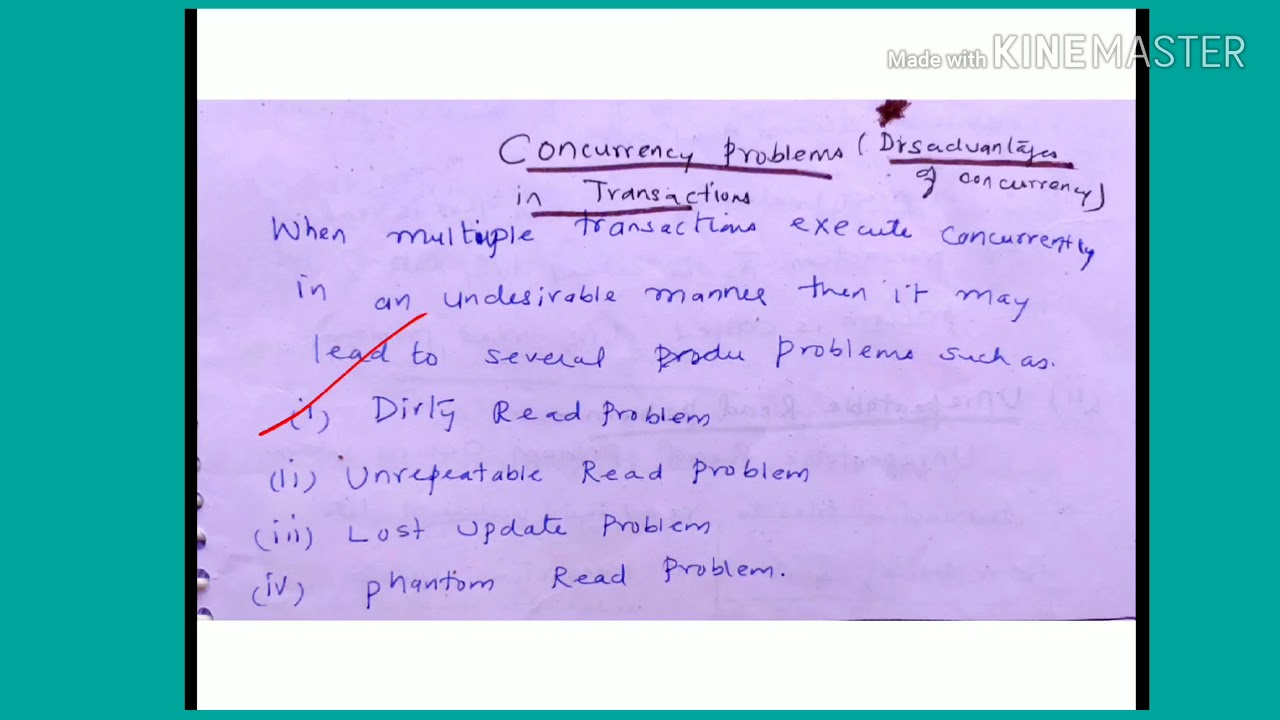 Made with KINEMASTER
Concurrency Problems (Disadvantages
of concurrency)
in Transactions
When multiple transactions execute concurrently
in an undesirable manner then it may
lead to several produ problems such as.
(i) Dirty Read Problem
(ii) Unrepeatable Read Problem
(iii) Lost Update Problem
(iv) Phantom Read Problem.